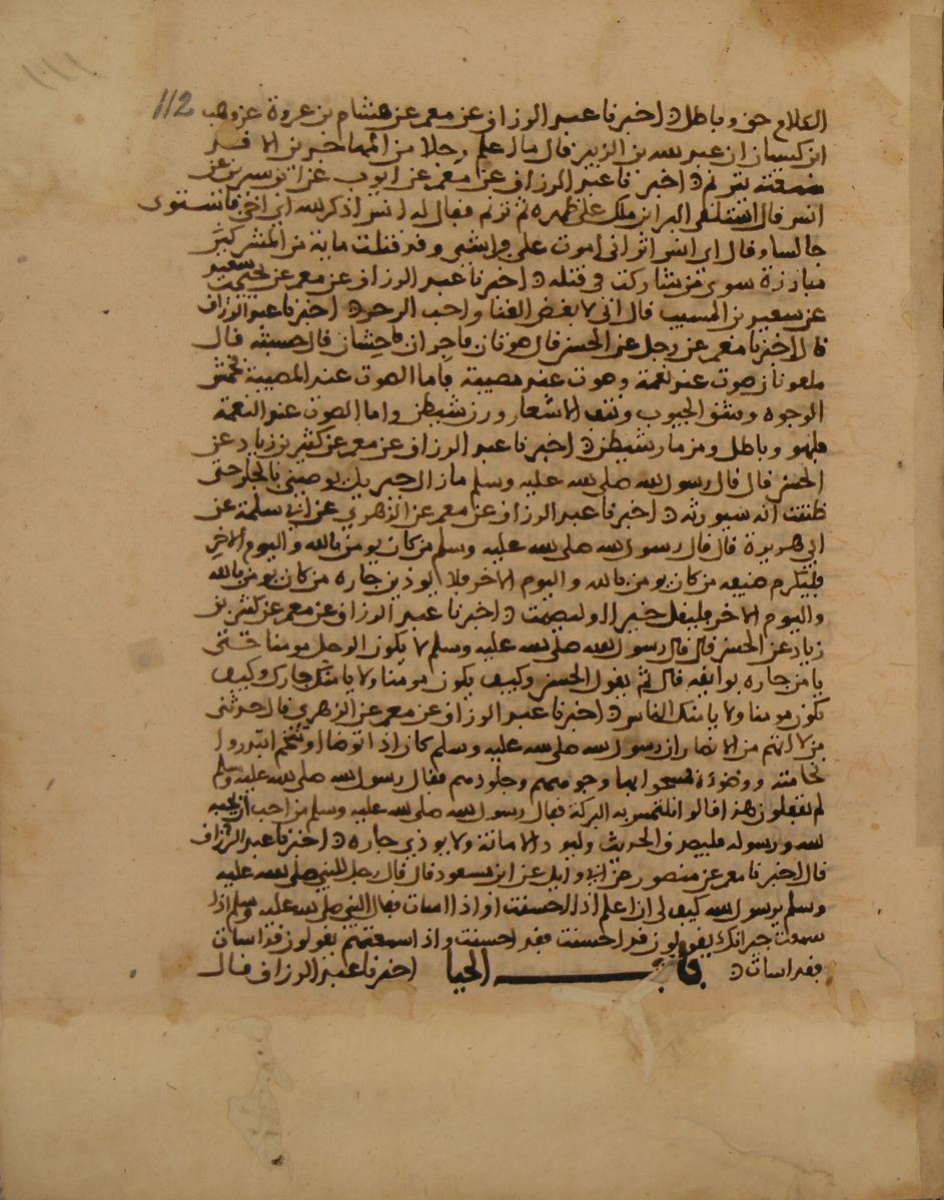 112
الكلام حق وباطل ه اخبرنا عبد الرزاق عن معمر عن هشام بن عروة عن وهب
ابن كيسان ان عبد الله بن الزبير قال ما اعلم رجلا من المهاجرين الا قد
سمعته يترنم ه اخبرنا عبد الرزاق عن معمر عن ايوب عن ابن سيرين عن
انس قال استلقى البرا بن ملك على ظهره ثم ترنم فقال له انس اذكر الله اي اخي فاستوى
جالسا وقال اي انس اتراني اموت على فراشي وقد قتلت ماية من المشركين
مبارزة سوى من شاركت في قتله ه اخبرنا عبد الرزاق عن معمر عن يحيى بن سعيد
عن سعيد بن المسيب قال اني لابغض الغنا واحب الرجز ه اخبرنا عبد الرزاق
قال اخبرنا معمر عن رجل عن الحسن قال صوتان فاجران فاحشان قال حسبته قال
ملعونان صوت عند نعمة وصوت عند مصيبة فاما الصوت عند المصيبة فخمش
الوجوه وشق الجيوب ونتف الاشعار ورن شيطن واما الصوت عند النعمة
فلهو وباطل ومزمار شيطن ه اخبرنا عبد الرزاق عن معمر عن كثير بن زياد عن
الحسن قال قال رسول الله صلى الله عليه وسلم ما زال جبريل يوصيني بالجار حتى
ظننت انه سيورثه ه اخبرنا عبد الرزاق عن معمر عن الزهري عن ابي سلمة عن
ابي هريرة قال قال رسول الله صلى الله عليه وسلم من كان يومن بالله واليوم الاخر
فليكرم ضيفه من كان يومن بالله واليوم الاخر فلا يوذين جاره من كان يومن بالله
واليوم الاخر فليقل خيرا او ليصمت ه اخبرنا عبد الرزاق عن معمر عن كثير بن
زياد عن الحسن قال قال رسول الله صلى الله عليه وسلم لا يكون الرجل مومنا حتى
يامن جاره بوايقه قال ثم يقول الحسن وكيف يكون مومنا ولا يامنك جارك وكيف
تكون مومنا ولا يامنك الناس ه اخبرنا عبد الرزاق عن معمر عن الزهري قال حدثني
من لا اتهم من الانصار ان رسول الله صلى الله عليه وسلم كان اذا توضا او تنخم ابتدروا
نخامته ووضوءه فمسحوا بها وجوههم وجلودهم فقال رسول الله صلى الله عليه وسلم
لم تفعلون هذا قالوا نلتمس به البركة فقال رسول الله صلى الله عليه وسلم من احب ان يحبه
الله ورسوله فليصدق الحديث وليود الامانة ولا يوذي جاره ه اخبرنا عبد الرزاق
قال اخبرنا معمر عن منصور عن ابي وايل عن ابن مسعود قال قال رجل للنبي صلى الله عليه
وسلم يرسول الله كيف لي ان اعلم اذا احسنت او اذا اسات فقال النبي صلى الله عليه وسلم اذا
سمعت جيرانك يقولون قد احسنت فقد احسنت واذا سمعتهم يقولون قد اسات
فقد اسات ه باب الحيا اخبرنا عبد الرزاق قال